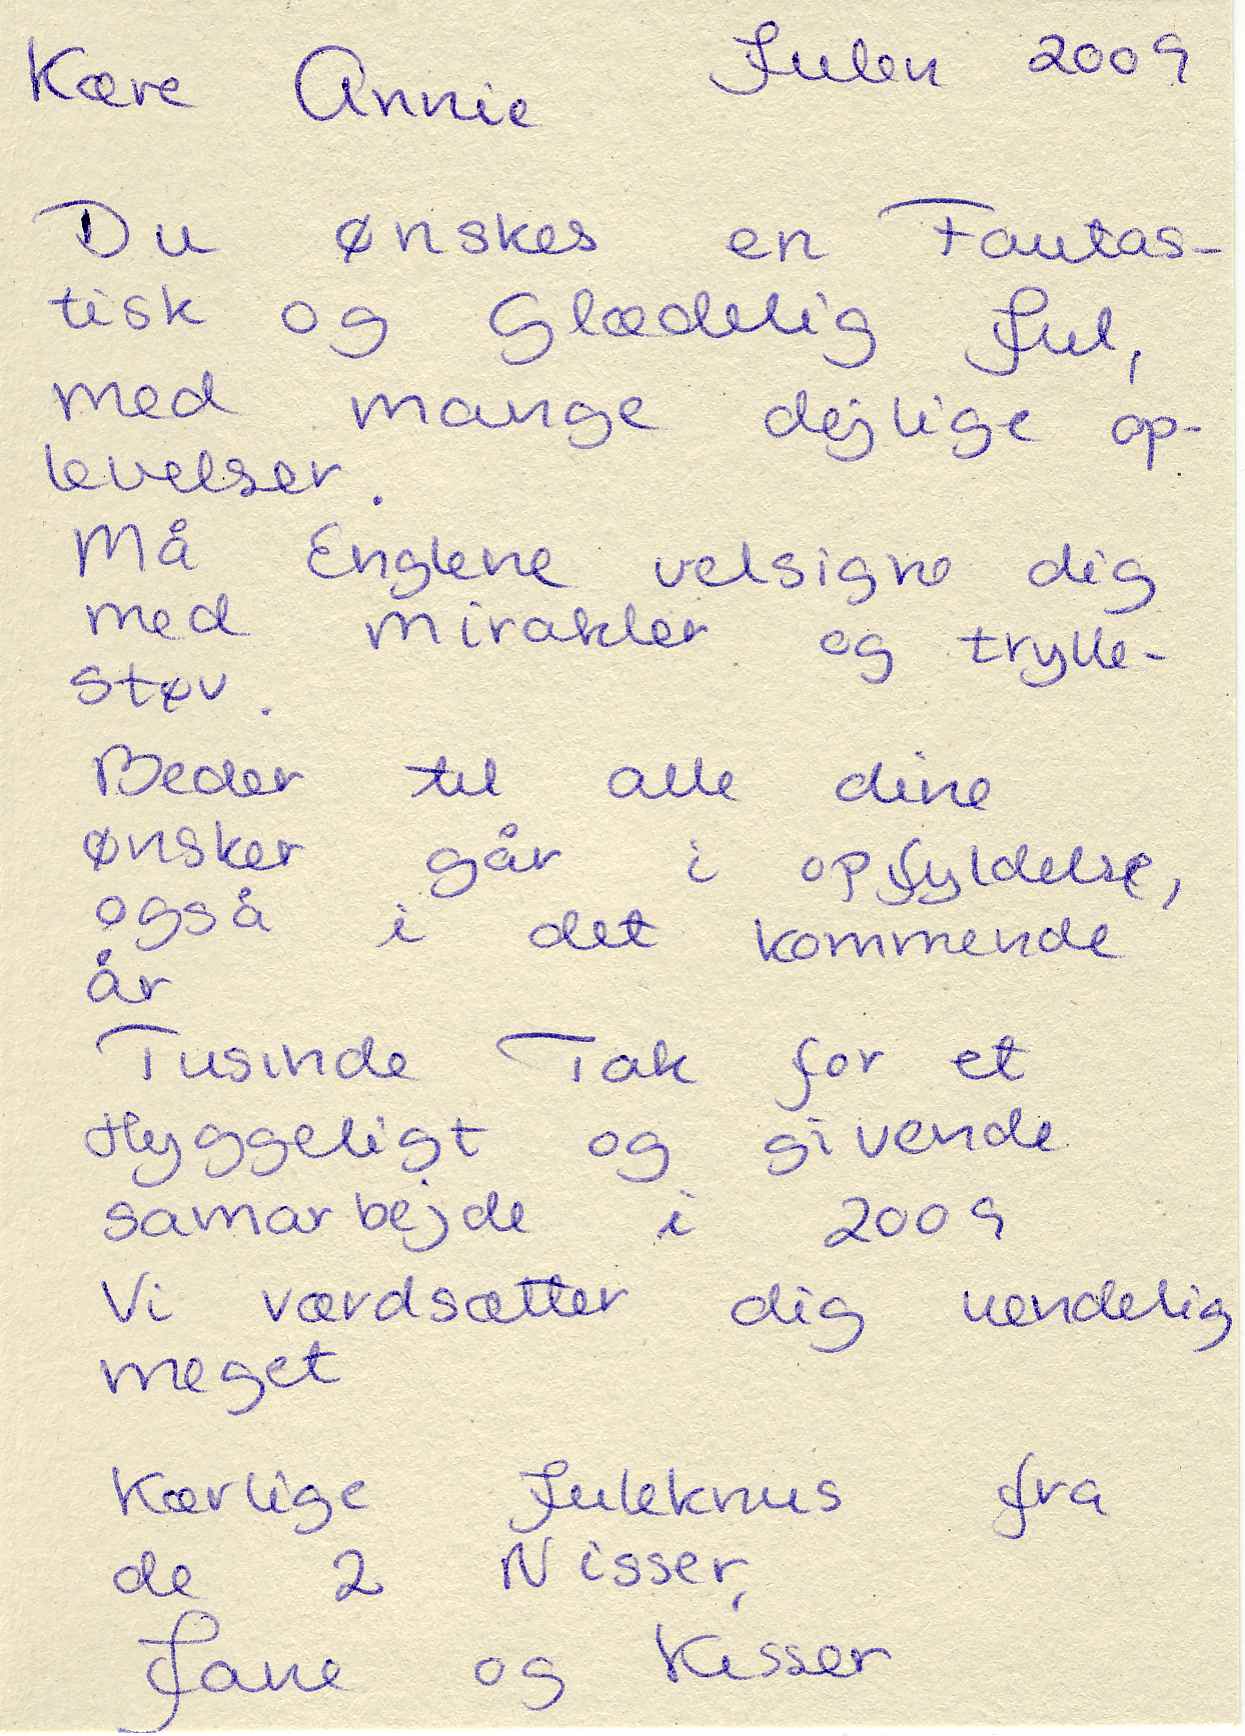 Kære Annie Julen 2009
Du ønskes en Fantas-
tisk og Glædelig Jul,
med mange dejlige op-
levelser.
Må Englene velsigne dig
med mirakler og trylle-
støv.
Beder til alle dine
ønsker går i opfyldelse,
også i det kommende
år
Tusinde Tak for et
Hyggeligt og givende
samarbejde i 2009
Vi værdsætter dig uendelig
meget
Kærlige Juleknus fra
de 2 Nisser,
Jane og Kisser